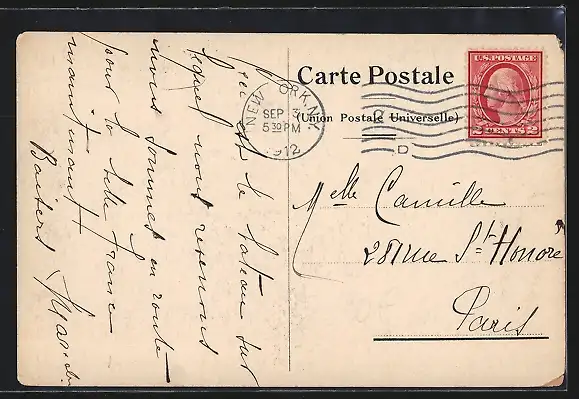 Carte Postale
(Union Postale Universelle)
U.S. POSTAGE
2 CENTS 2
NEW YORK, N.Y.
SEP 3
5 30 PM
1912
D
Melle Camille
281 rue St. Honoré
Paris
est le bateau sur
lequel nous revenons
nous sommes en route
pour la belle France
maintenant
Baisers